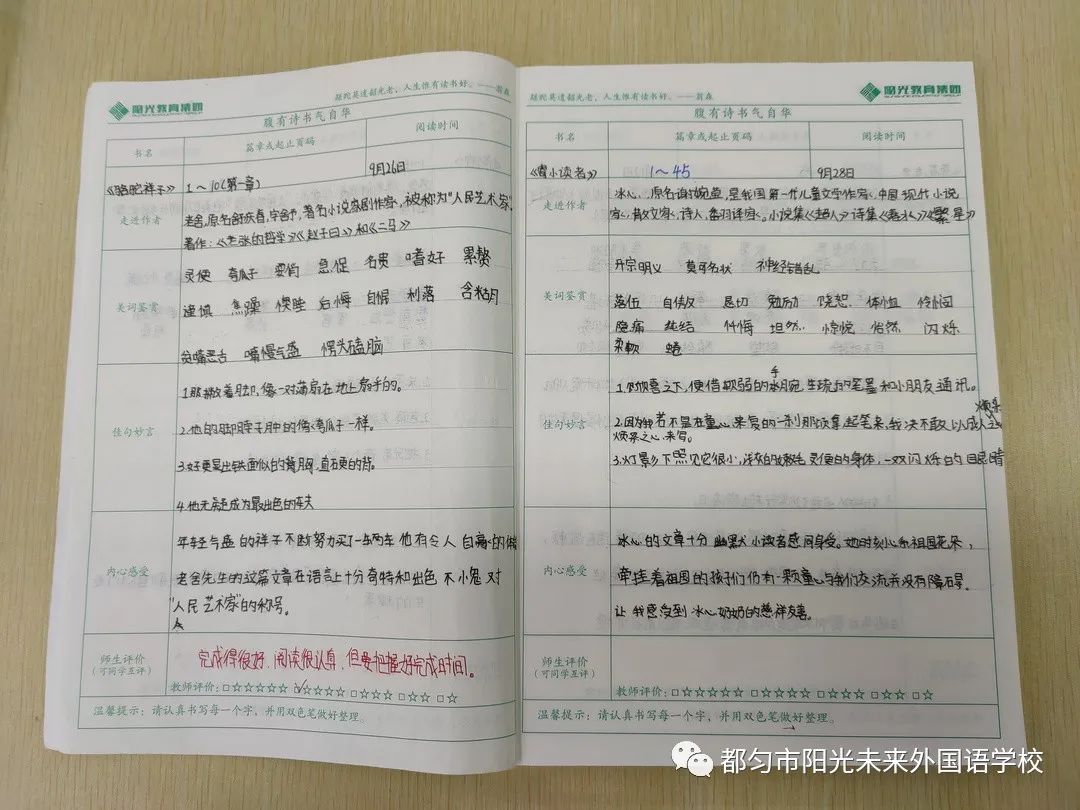 阳光教育集团
蹉跎莫遣韶光老，人生惟有读书好。——翁森
腹有诗书气自华
书名
篇章或起止页码
阅读时间
《骆驼祥子》
1～10(第一章)
9月26日
走进作者
老舍,原名舒庆春,字舍予,著名小说家剧作家,被称为"人民艺术家".
著作:《老张的哲学》《赵子曰》和《二马》
美词鉴赏
灵便 窝瓜子 耍俏 急促 名贵 嗜好 累赘
谨慎 焦躁 懊睉 后悔 自恨 利落 含粘胡
贫嘴恶舌 嘴慢气盛 愣头磕脑
佳句妙言
1.那撇着脚,像一对蒲扇在地上扇乎的。
2.他的脚脖子肿的像窝瓜子一样。
3.好更显出铁面似的黄胸,直硬的背。
4.他无疑成为最出色的车夫
内心感受
年轻气盛的祥子不断努力买了一辆车他有令人自
老舍先生的这篇文章在语言上十分奇特和出色不小鬼对
"人民艺术家"的称号。
师生评价
(可同学互评)
完成得很好,阅读很认真,但要把握好完成时间。
教师评价:□☆☆☆☆☆ □☆☆☆☆ □☆☆☆ □☆☆ □☆
温馨提示：请认真书写每一个字，并用双色笔做好整理。
蹉跎莫遣韶光老，人生惟有读书好。——翁森
阳光教育集团
腹有诗书气自华
书名
篇章或起止页码
阅读时间
《寄小读者》
1～45
9月28日
走进作者
冰心,原名谢婉莹,是我国第一代儿童文学作家,中国现代小说
家,散文家,诗人,翻译家。小说集《超人》诗集《春水》《繁星》
美词鉴赏
开宗明义 莫可名状 神经错乱
落伍 自傲 恳切 勉励 饶恕 体恤 怜悯
隐痛 悲结 忏悔 坦然 惊悦 怡然 闪烁
柔软 蜷
佳句妙言
1.喜之下,便借软弱的手腕,生疏的笔墨和小朋友通讯。
2.因为我若不是在童心来复的一刹那顷拿起笔来,我决不敢以成人
烦杂
烦杂之心来写。
3.灯影下照见它很小,浅灰的嫩毛灵便的身体,一双闪烁的眼睛
内心感受
冰心的文章十分幽默小读者感同身受。她时刻心系祖国花朵,
牵挂着祖国的孩子们仍有一颗童心与我们交流并没有障碍。
让我感受到冰心奶奶的慈祥友善。
师生评价
(可同学互评)
教师评价:□☆☆☆☆☆ □☆☆☆☆ □☆☆☆ □☆☆ □☆
温馨提示：请认真书写每一个字，并用双色笔做好整理。
都匀市阳光未来外国语学校